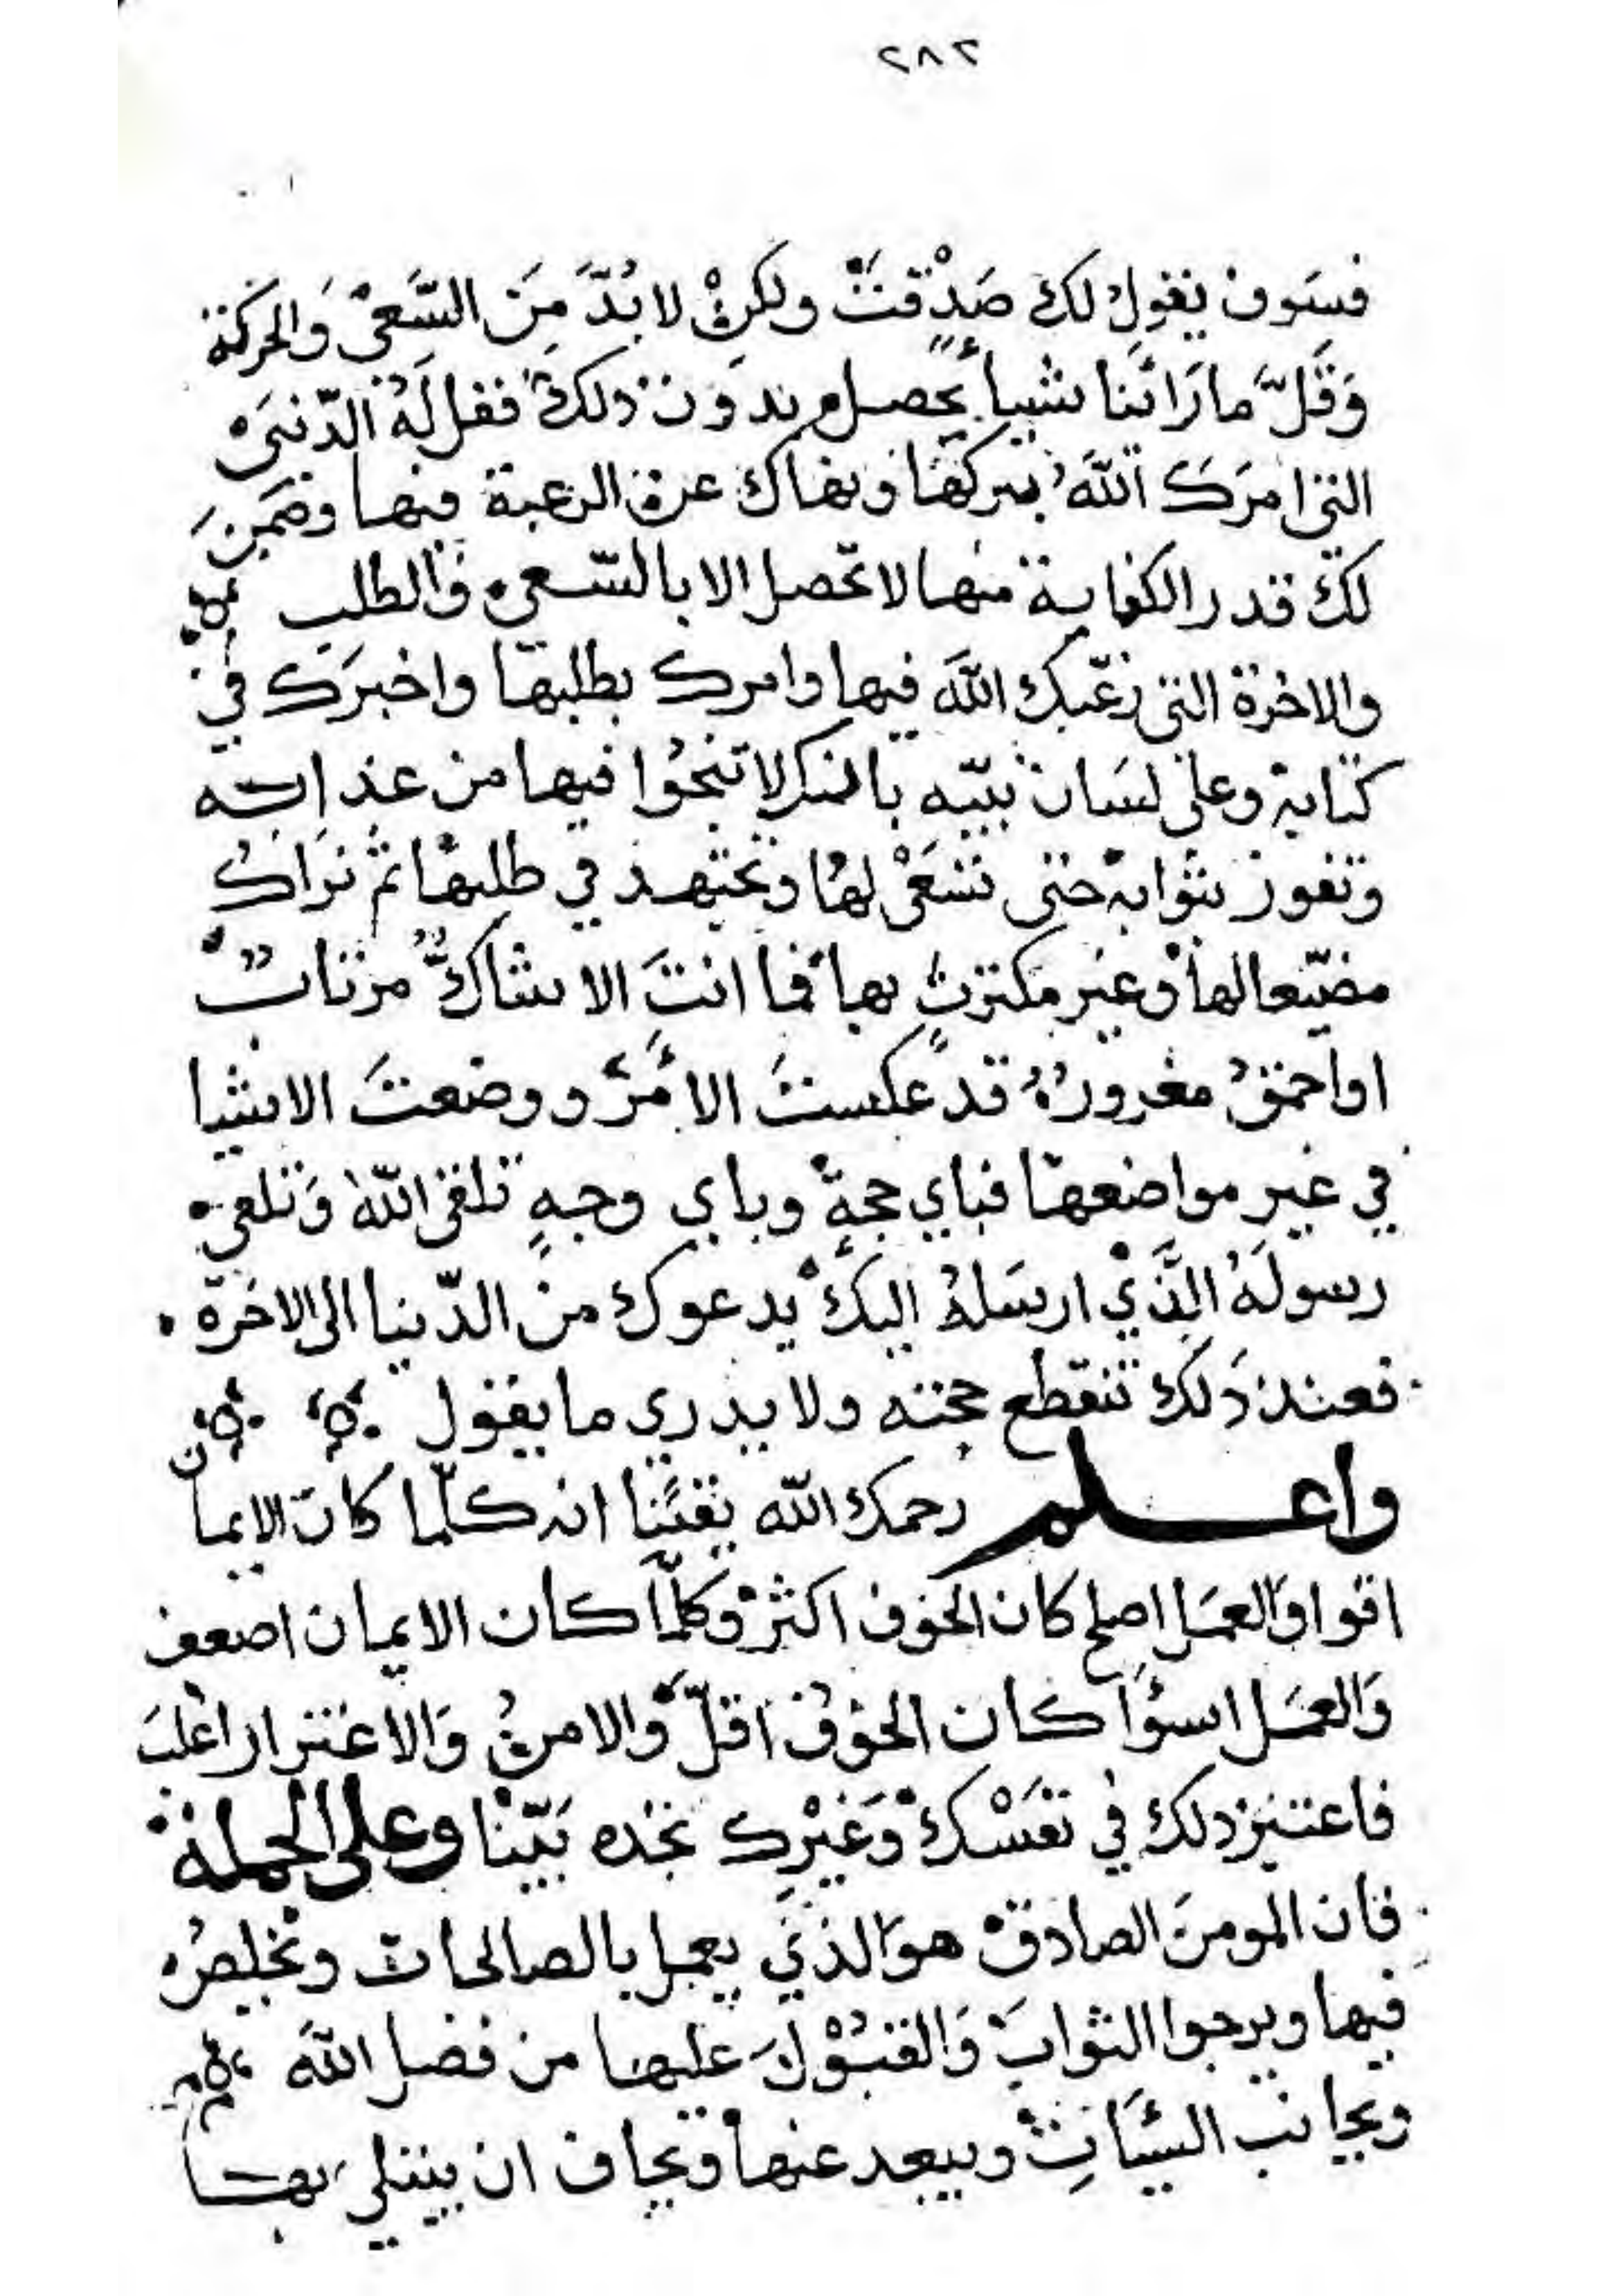 ٢٨٢
فسَوف يقول لك صَدَقْتَ ولكنْ لا بُدَّ مِنَ السَّعيْ وَالحركة
وَقَلَّ ما رَائنَا شيأً يحصل بدون ذلكَ فقل لَهُ الدّنيَى
التي امرَكَ اللهُ بتركهَا ونهاك عن الرغبة فيها وضمِنَ
لكَ قدر الكفاية منها لا تحصل الا بالسّعي وَالطلب
والاخرة التي رغّبك اللهَ فيها وامرك بطلبهَا واخبرَك في
كتابه وعلى لسَان نبيّه بانك لا تنجُوا فيها من عذابه
وتفوز بثوابه حتى تسْعَى لهَا وتجتهد في طلبها ثم نرَاك
مضيّعا لها وغير مكترثٍ بها فما انتَ الا شاكٌّ مرتابٌ
او احمقُ مغرورٌ قد عكستَ الامْرَ ووضعتَ الاشيا
في غيرِ مواضعهَا فباي حجةٍ وباي وجهٍ تلقى اللهَ وَتلقى
رسولَهُ الَّذيْ ارسَلهُ اليكْ يدعوك من الدّنيا الى الاخرة
فعند ذَلك تنقطع حجته ولا يدري ما يقول
واعلم رحمك الله يقينًا انه كلّما كان الايمان
اقوا وَالعمَل اصلح كان الخوف اكثرْ وكلّما كان الايمان اضعف
وَالعمَل اسوَأ كان الخوف اقلّ والامنُ وَالاغترار اغلبَ
فاعتبر ذلك في نفسْكْ وَغيْرِك تجده بَيّنًا وعلى الجملة
فان المومنَ الصادقْ هوَ الذي يعمل بالصالحات ويخلصُ
فيها ويرجوا الثوابَ وَالقبُوْلَ عليها من فضل اللهَ
ويجانب السيّئَاتِ ويبعد عنها ويخاف ان يبتلى بها